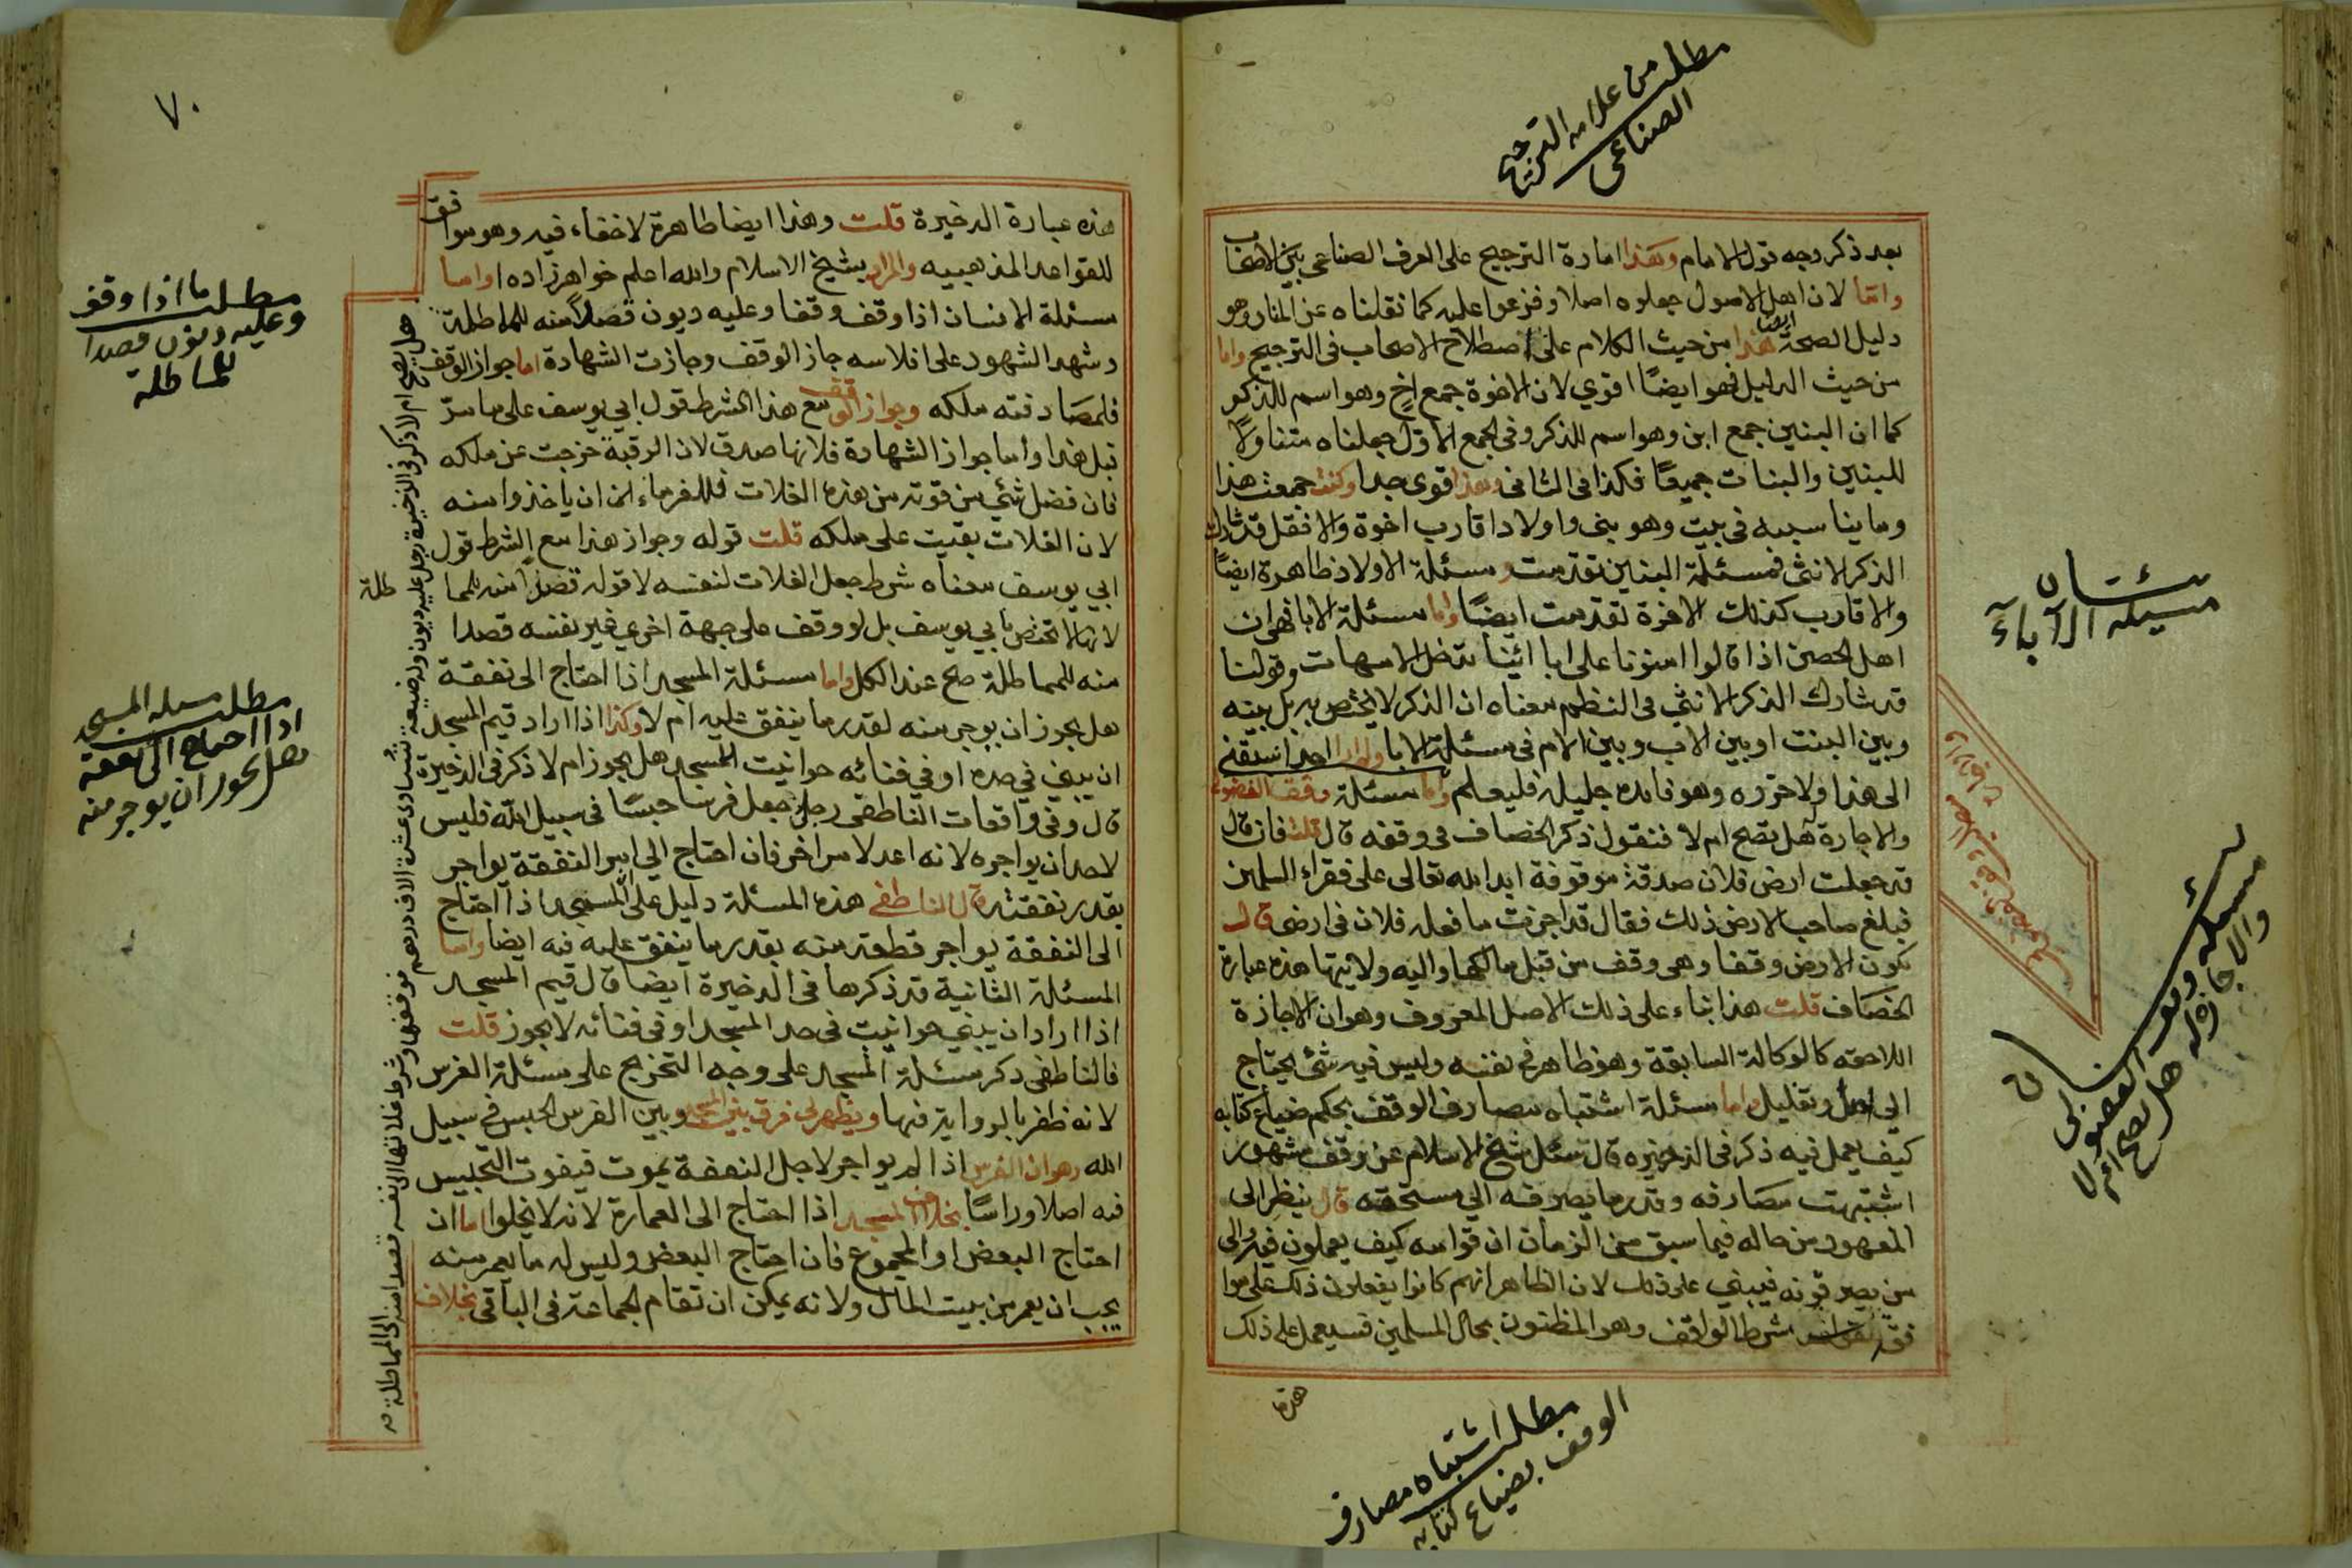 مطلب من علامه الترجيح
الصناعى
بعد ذكر وجه قول الامام وهذا امارة الترجيح على العرف الصناعى بين الاصحاب
وانما لان اهل الاصول جعلوه اصلا وفزعوا عليه كما نقلناه عن المنار وهو
دليل الصحة ايضا هذا من حيث الكلام على اصطلاح الاصحاب فى الترجيح واما
من حيث الدليل فهو ايضا اقوي لان الاخوة جمع اخ وهو اسم للذكر
كما ان البنين جمع ابن وهو اسم للذكر وفى الجمع الاول جعلناه متناولا
للبنين والبنات جميعا فكذا فى الثانى وهذا قوى جدا وكنت جمعت هذا
وما يناسبه فى بيت وهو بنى واولاد اقارب اخوة والا فقل قد شارك
الذكر الانثى فمسئلة البنين تقدمت ومسئلة الاولاد ظاهرة ايضا
والاقارب كذلك الاخوة تقدمت ايضا واما مسئلة الابا فهى ان
اهل الحصن اذا قالوا امنونا على ابائنا تدخل الامهات وقولنا
قد شارك الذكر الانثى فى النظم معناه ان الذكر لا يختص به بل بينه
وبين البنت او بين الاب وبين الام فى مسئلة الابا ولم ار احدا سبقنى
الى هذا ولا حرره وهو فائده جليلة فليعلم واما مسئلة وقف الفضولى
والاجازة هل تصح ام لا فنقول ذكر الخصاف فى وقفه قال قلت فان قال
قد جعلت ارض فلان صدقة موقوفة ابدا لله تعالى على فقراء المسلمين
فبلغ صاحب الارض ذلك فقال قد اجزت ما فعله فلان فى ارضى قال
تكون الارض وقفا وهى وقف من قبل مالكها واليه ولايتها هذه عبارة
الخصاف قلت هذا بناء على ذلك الاصل المعروف وهو ان الاجازة
اللاحقه كالوكالة السابقة وهو ظاهر فى نفسه وليس فيه شئ يحتاج
الى اصل وتعليل واما مسئلة اشتباه مصارف الوقف بحكم ضياع كتابه
كيف يعمل فيه ذكر فى الذخيره قال سئل شيخ الاسلام عن وقف مشهور
اشتبهت مصارفه وقدر ما يصرف الى مستحقه قال ينظر الى
المعهود من حاله فيما سبق من الزمان ان قوامه كيف يعملون فيه والى
من يصرفونه فيبنى على ذلك لان الظاهر انهم كانوا يفعلون ذلك على موا
فقة شرط الواقف وهو المظنون بحال المسلمين فيعمل على ذلك
هذه
مسئلتان
مسئله الآباء
مسئله وقف الفضولى
والاجازة له هل تصح ام لا
مطلب اشتباه مصارف
الوقف بضياع كتابه
٧٠
هذه عبارة الذخيرة قلت وهذا ايضا ظاهرة لا خفاء فيه وهو موافق
للقواعد المذهبيه والمراد بشيخ الاسلام والله اعلم خواهرزاده واما
مسئلة الانسان اذا وقف وقفا وعليه ديون قصدا منه للماطلة
وشهد الشهود على افلاسه جاز الوقف وجازت الشهادة اما جواز الوقف
فلمصادفته ملكه وجواز الوقف مع هذا الشرط قول ابى يوسف على ما مر
قبل هذا واما جواز الشهادة فلانها صدق لان الرقبة خرجت عن ملكه
فان فضل شئ من قوته من هذه الغلات فللغرماء ان ياخذوا منه
لان الغلات بقيت على ملكه قلت قوله وجواز هذا مع الشرط قول
ابي يوسف معناه شرط جعل الغلات لنفسه لا قوله قصدا منه للمما طلة
لانها لا تختص بابي يوسف بل لو وقف على جهة اخري غير نفسه قصدا
منه للمماطلة صح عند الكل واما مسئلة المسجد اذا احتاج الى نفقة
هل يجوز ان يوجر منه لقدر ما ينفق عليه ام لا وكذا اذا اراد قيم المسجد
ان يبنى في حده او في فنائه حوانيت المسجد هل يجوز ام لا ذكر فى الذخيرة
قال وفى واقعات الناطفى رجل جعل فرسا حبسا فى سبيل الله فليس
لاحد ان يواجره لانه اعد لامر اخر فان احتاج الى النفقة يواجر
بقدر نفقته قال الناطفى هذه المسئلة دليل على المسجد اذا احتاج
الى النفقة يواجر قطعة منه بقدر ما ينفق عليه فيه ايضا واما
المسئلة الثانية قد ذكرها فى الذخيرة ايضا قال قيم المسجد
اذا اراد ان يبنى حوانيت فى حد المسجد او فى فنائه لا يجوز قلت
فالناطفى ذكر مسئلة المسجد على وجه التخريج على مسئلة الفرس
لانه ظفر بالرواية فيها ويظهر لى فرق بين المسجد وبين الفرس الحبس فى سبيل
الله وهو ان الفرس اذا لم يواجر لاجل النفقة يموت فيفوت التحبيس
فيه اصلا وراسا بخلاف المسجد اذا احتاج الى العمارة لانه لا يخلوا اما ان
احتاج البعض او المجموع فان احتاج البعض وليس له ما يعمر منه
يجب ان يعمر من بيت المال ولانه يمكن ان تقام الجماعة فى الباقى بخلاف
هل يصح ام لا ذكر فى الذخيرة رجل عليه ديون وله ضيعة تساوى عشرة الاف درهم فوقفها وشرط غلاتها الى نفسه قصدا منه الى المماطلة
مطلب ما اذا وقف
وعليه ديون قصدا
للماطلة
مطلب مسئله المسجد
اذا احتاج الى نفقة
هل يجوز ان يوجر منه